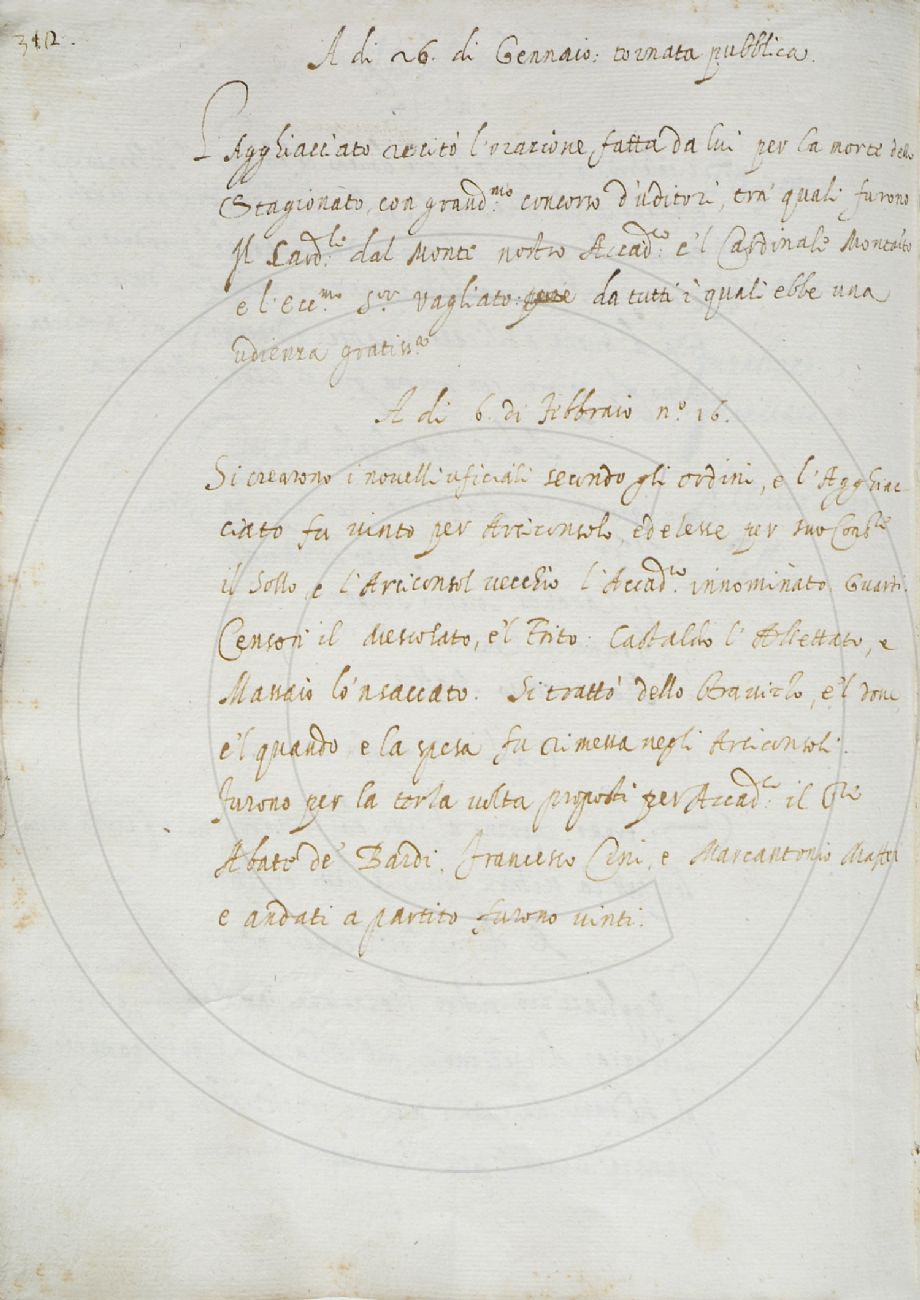 342.
A di 26. di Gennaio: tornata pubblica.
L'Agghiacciato recitò l'orazione fatta da lui per la morte dello
Stagionato, con grand.mo concorso d'uditori, tra' quali furono
Il Card.le dal Monte nostro Accad.co e 'l Cardinale Montalto
e l'ecc.mo S.or Vagliato: da tutti i quali ebbe una
udienza gratiss.a
A di 6. di Febbraio n.o 16.
Si crearono i novelli uficiali secondo gli ordini, e l'Agghiac-
ciato fu vinto per Arciconsolo, ed elesse per suo Cons.re
il Sollo e l'Arciconsol vecchio l'Accad.co innominato. Guardi.
Censori il Mescolato, e 'l Trito: Castaldo l'Assettato, e
Massaio lo 'nsaccato. Si trattò dello Stravizzo, e 'l dove
e 'l quando e la spesa fu rimessa negli Arciconsoli.
Furono per la terza volta proposti per Accad.ci il
Abate de' Bardi, Francesco Cini, e Marcantonio
e andati a partito furono vinti.